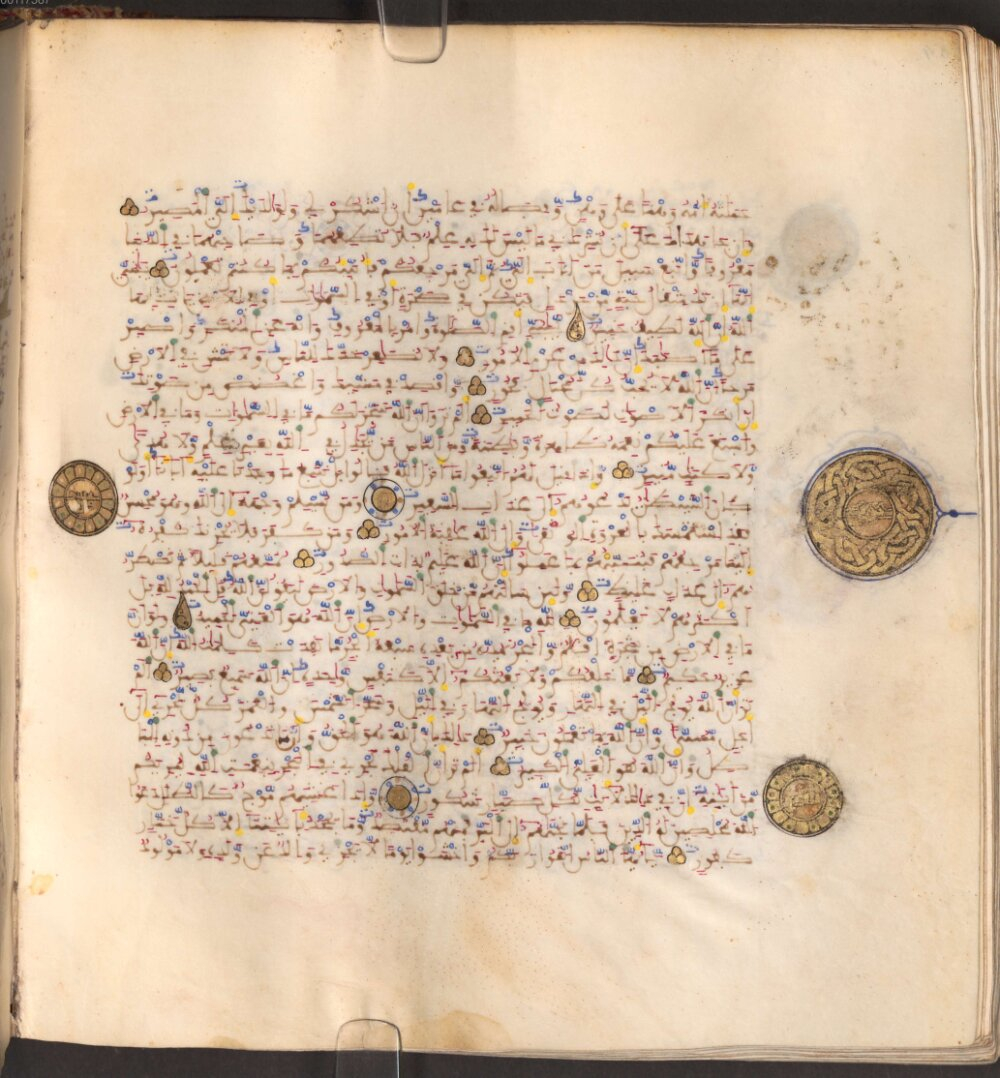 حملته أمه وهنا على وهن وفصله في عامين أن اشكر لي ولولديك إلي المصير
وإن جهداك على أن تشرك بي ما ليس لك به علم فلا تطعهما وصاحبهما في الدنيا
معروفا واتبع سبيل من أناب إلي ثم إلي مرجعكم فأنبئكم بما كنتم تعملون يبني
إنها إن تك مثقال حبة من خردل فتكن في صخرة أو في السموت أو في الارض يات بها
الله إن الله لطيف خبير يبني أقم الصلوة وامر بالمعروف وانه عن المنكر واصبر
على ما أصابك إن ذلك من عزم الامور ولا تصعر خدك للناس ولا تمش في الارض
مرحا إن الله لا يحب كل مختال فخور واقصد في مشيك واغضض من صوتك
إن أنكر الاصوت لصوت الحمير ألم تروا أن الله سخر لكم ما في السموت وما في الارض
وأسبغ عليكم نعمه ظهرة وباطنة ومن الناس من يجدل في الله بغير علم ولا هدى
ولا كتب منير وإذا قيل لهم اتبعوا ما أنزل الله قالوا بل نتبع ما وجدنا عليه ءاباءنا أولو
كان الشيطن يدعوهم إلى عذاب السعير ومن يسلم وجهه إلى الله وهو محسن
فقد استمسك بالعروة الوثقى وإلى الله عقبة الامور ومن كفر فلا يحزنك كفره
إلينا مرجعهم فننبئهم بما عملوا إن الله عليم بذات الصدور نمتعهم قليلا ثم نضطر
هم إلى عذاب غليظ ولئن سألتهم من خلق السموت والارض ليقولن الله قل الحمد لله بل
أكثرهم لا يعلمون لله ما في السموت والارض إن الله هو الغني الحميد ولو أن
ما في الارض من شجرة أقلم والبحر يمده من بعده سبعة أبحر ما نفدت كلمت الله إن الله
عزيز حكيم ما خلقكم ولا بعثكم إلا كنفس وحدة إن الله سميع بصير ألم
تر أن الله يولج اليل في النهار ويولج النهار في اليل وسخر الشمس والقمر كل يجري إلى
أجل مسمى وأن الله بما تعملون خبير ذلك بأن الله هو الحق وأن ما تدعون من دونه البا
طل وأن الله هو العلي الكبير ألم تر أن الفلك تجري في البحر بنعمت الله ليريكم
من ءايته إن في ذلك لايت لكل صبار شكور وإذا غشيهم موج كالظلل دعوا
الله مخلصين له الدين فلما نجيهم إلى البر فمنهم مقتصد وما يجحد بئايتنا إلا كل ختار
كفور يأيها الناس اتقوا ربكم واخشوا يوما لا يجزي والد عن ولده ولا مولود